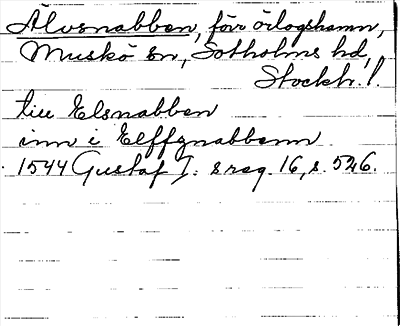 Älvsnabben, förr örlogshamn,
Muskö sn, Sotholms hd,
Stockh. l.
till Elsnabben
inn i Elffznabbenn
1544 Gustaf I: s reg. 16, s. 526.